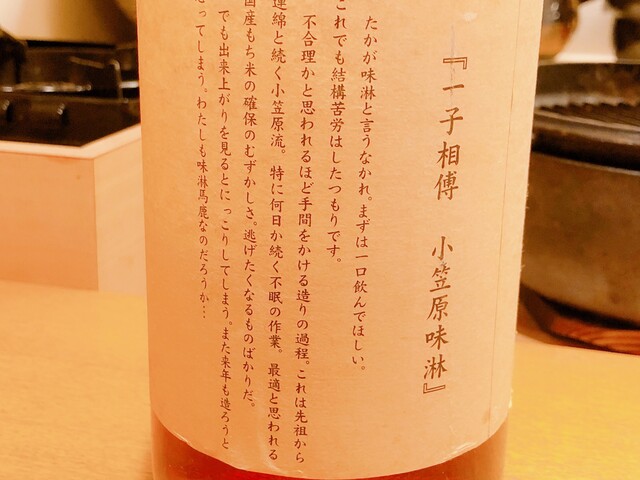 『一子相傅　小笠原味淋』
たかが味淋と言うなかれ。まずは一口飲んでほしい。
これでも結構苦労はしたつもりです。
不合理かと思われるほど手間をかける造りの過程。これは先祖から
連綿と続く小笠原流。特に何日か続く不眠の作業。最適と思われる
国産もち米の確保のむずかしさ。逃げたくなるものばかりだ。
でも出来上がりを見るとにっこりしてしまう。また来年も造ろうと
ってしまう。わたしも味淋馬鹿なのだろうか…